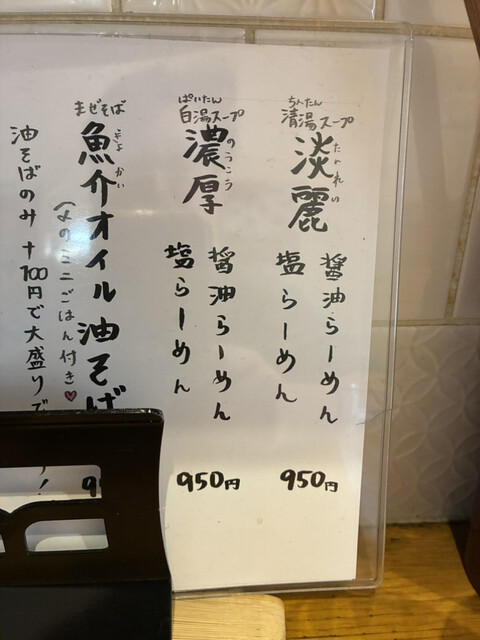 ちんたん
清湯スープ
淡麗
たんれい
醤油らーめん
塩らーめん
950円
ぱいたん
白湯スープ
濃厚
のうこう
醤油らーめん
塩らーめん
950円
まぜそば
魚介オイル油そば
ぎょかい
(〆のミニごはん付き♥
9
油そばのみ +100円で大盛りで
!